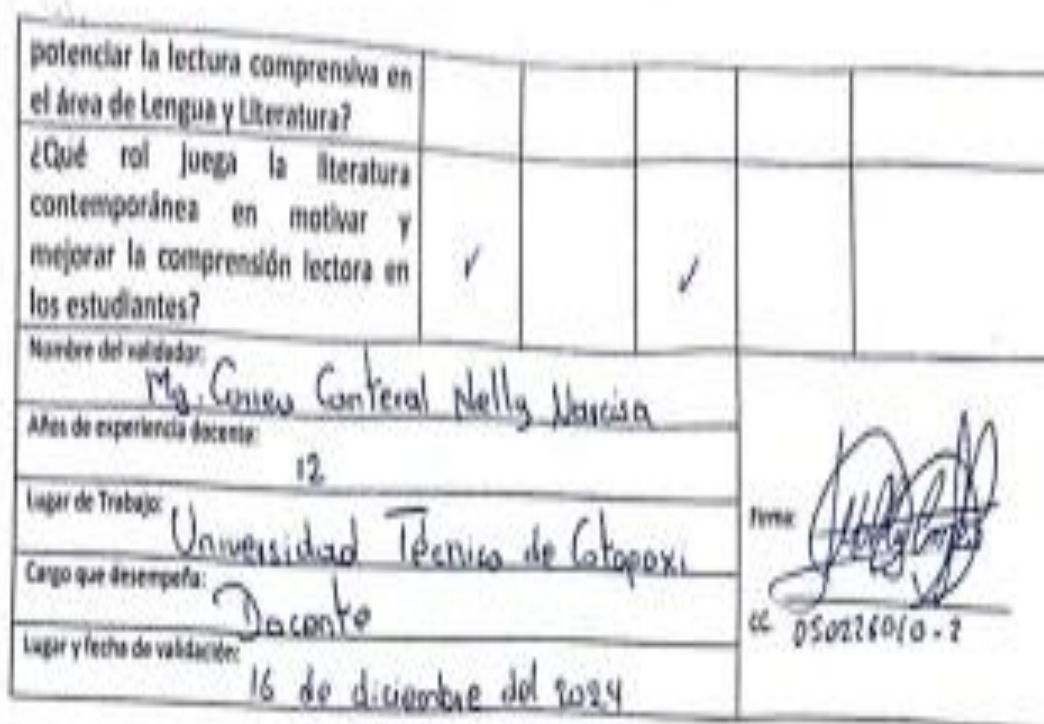 potenciar la lectura comprensiva en
el área de Lengua y Literatura?
¿Qué rol juega la literatura
contemporánea en motivar y
mejorar la comprensión lectora en
los estudiantes?
✓ ✓
Nombre del validador:
Mg. Nelly Narcisa
Años de experiencia docente:
12
Lugar de Trabajo:
Universidad Técnica de Cotopaxi
Cargo que desempeña:
Docente
Lugar y fecha de validación:
16 de diciembre del 2024
Firma:
CC